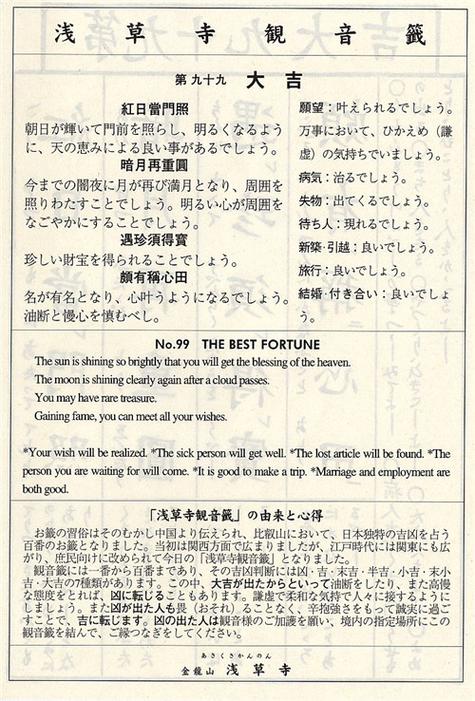 浅草寺観音籤
第九十九 大吉
紅日當門照
朝日が輝いて門前を照らし、明るくなるよう
に、天の恵みによる良い事があるでしょう。
暗月再重圓
今までの闇夜に月が再び満月となり、周囲を
照りわたすことでしょう。明るい心が周囲を
なごやかにすることでしょう。
遇珍須得寶
珍しい財宝を得られることでしょう。
頗有稱心田
名が有名となり、心叶うようになるでしょう。
油断と慢心を慎むべし。
願望：叶えられるでしょう。
万事において、ひかえめ（謙
虚）の気持ちでいましょう。
病気：治るでしょう。
失物：出てくるでしょう。
待ち人：現れるでしょう。
新築・引越：良いでしょう。
旅行：良いでしょう。
結婚・付き合い：良いでしょ
う。
No.99 THE BEST FORTUNE
The sun is shining so brightly that you will get the blessing of the heaven.
The moon is shining clearly again after a cloud passes.
You may have rare treasure.
Gaining fame, you can meet all your wishes.
*Your wish will be realized. *The sick person will get well. *The lost article will be found. *The
person you are waiting for will come. *It is good to make a trip. *Marriage and employment are
both good.
「浅草寺観音籤」の由来と心得
お籤の習俗はそのむかし中国より伝えられ、比叡山において、日本独特の吉凶を占う
百番のお籤となりました。当初は関西方面で広まりましたが、江戸時代には関東にも広
がり、庶民向けに改められて今日の「浅草寺観音籤」となりました。
観音籤には一番から百番まであり、その吉凶判断には凶・吉・末吉・半吉・小吉・末小
吉・大吉の7種類があります。この中、大吉が出たからといって油断をしたり、また高慢
な態度をとれば、凶に転じることもあります。謙虚で柔和な気持で人々に接するように
しましょう。また凶が出た人も畏（おそれ）ることなく、辛抱強さをもって誠実に過ご
すことで、吉に転じます。凶の出た人は観音様のご加護を願い、境内の指定場所にこの
観音籤を結んで、ご縁つなぎをしてください。
あさくさかんのん
金龍山 浅草寺